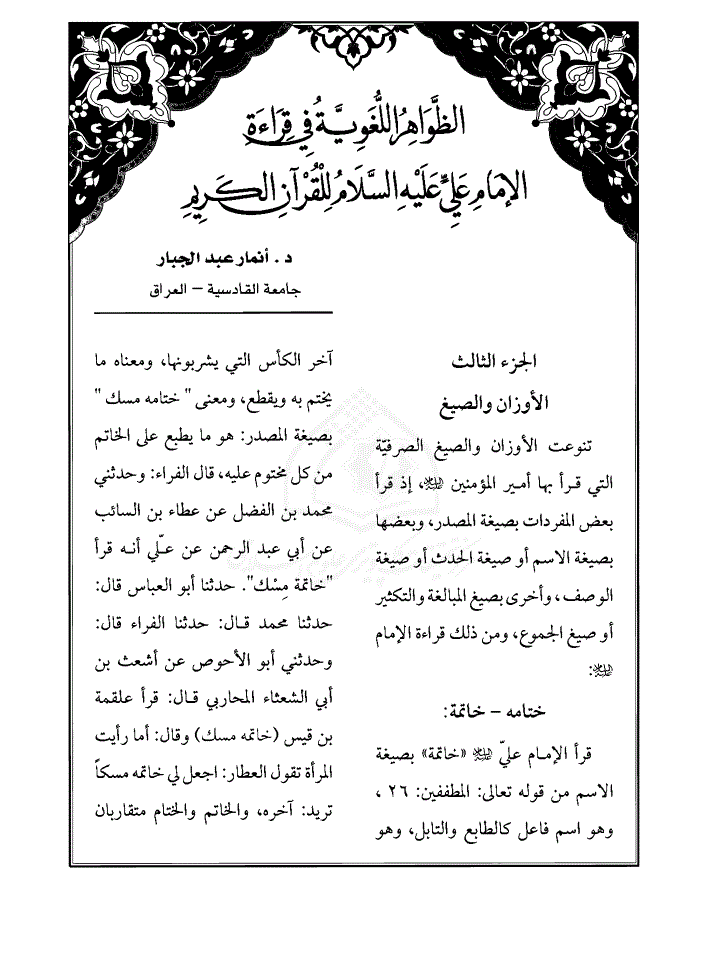 الظَّوَاهِرُ اللُّغَوِيَّةُ فِي قِرَاءَةِ
الإمَامِ عَلِيٍّ عَلَيْهِ السَّلَامُ لِلْقُرْآنِ الكَرِيمِ
د. أنمار عبد الجبار
جامعة القادسية – العراق
الجزء الثالث
الأوزان والصيغ
تنوعت الأوزان والصيغ الصرفيّة
التي قـرأ بها أمـير المؤمنين عليه السلام، إذ قرأ
بعض المفردات بصيغة المصدر، وبعضها
بصيغة الاسم أو صيغة الحدث أو صيغة
الوصف، وأخرى بصيغ المبالغة والتكثير
أو صيغ الجموع، ومن ذلك قراءة الإمام
عليه السلام:
ختامه – خاتمة:
قرأ الإمـام عليّ عليه السلام «خاتمة» بصيغة
الاسم من قوله تعالى: المطففين: ٢٦ ،
وهو اسم فاعل كالطابع والتابل، وهو
آخر الكأس التي يشربونها، ومعناه ما
يختم به ويقطع، ومعنى " ختامه مسك "
بصيغة المصدر: هو ما يطبع على الخاتم
من كل مختوم عليه، قال الفراء: وحدثني
محمد بن الفضل عن عطاء بن السائب
عن أبي عبد الرحمن عن عـلّي أنـه قرأ
"خاتمة مِسْك". حدثنا أبو العباس قال:
حدثنا محمد قـال: حدثنا الفراء قال:
وحدثني أبو الأحوص عن أشعث بن
أبي الشعثاء المحاربي قـال: قرأ علقمة
بن قيس (خاتمه مسك) وقال: أما رأيت
المرأة تقول العطار: اجعل لي خاتمه مسكاً
تريد: آخره، والخاتم والختام متقاربان